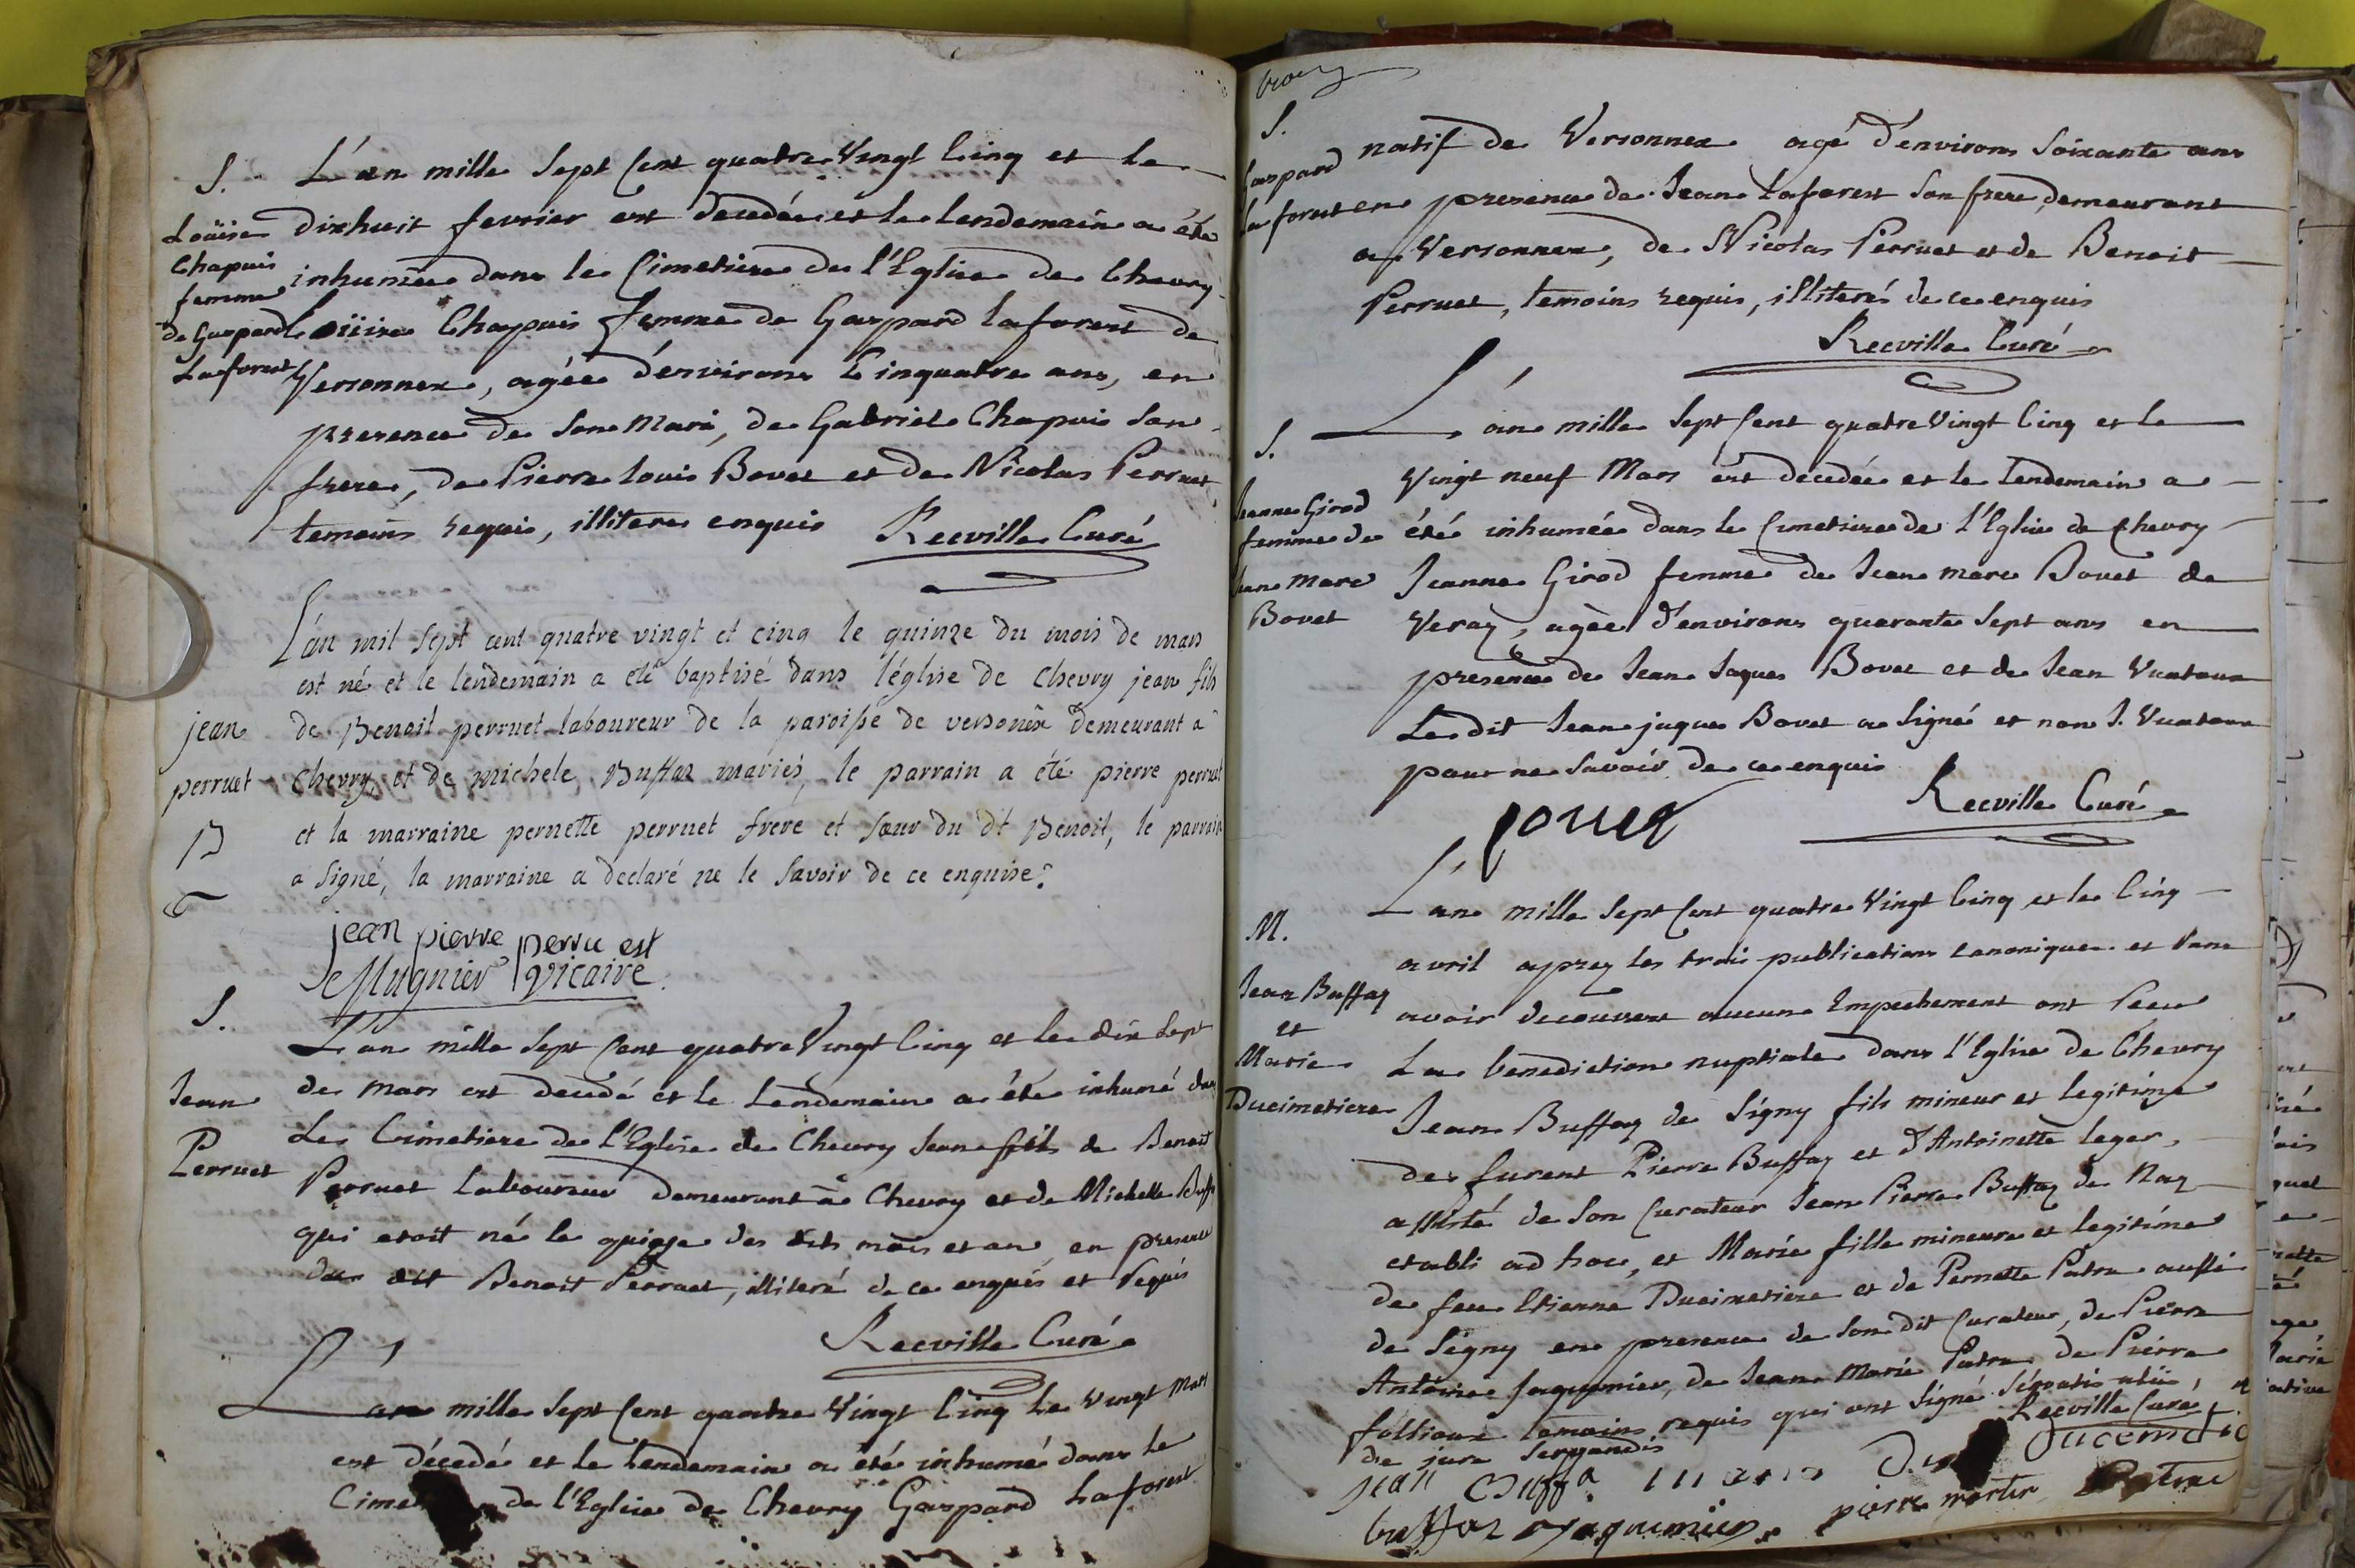 S.
Loüise
Chapuis
femme
de Gaspard
Laforest
L'an mille Sept Cent quatre Vingt Cinq et le
dixhuit fevrier est decedée et le lendemain a été
inhumée dans le Cimetiere de l'Eglise de Chevry
Loüise Chapuis femme de Gaspard laforest de
Versonnex, agée d'environs Cinquatre ans, en
presence de Son Mari, de Gabriel Chapuis Son
frere, de Pierre Louis Bovet et de Nicolas Perruet
temoins requis, illiteres enquis Reeville Curé
jean
perruet
B
L'an mil Sept cent quatre vingt et cinq le quinze du mois de mars
est né et le lendemain a eté baptisé dans léglise de chevry jean fils
de Benoit perruet laboureur de la paroisse de versonêx demeurant a
chevry, et de michele Buffaz mariés, le parrain a été pierre perruet
et la marraine pernette perruet frere et sœur du dt Benoit, le parrain
a Signé, la marraine a declaré ne le Savoir de ce enquise.
jean pierre perru est
Mugnier Vicaire
S.
Jean
Perruet
L'an mille Sept Cent quatre Vingt Cinq et le dix Sept
de Mars est decedé et le Lendemain a été inhumé dans
Le Cimetiere de l'Eglise de Chevry Jean fils de Benoit
Perruet Laboureur demeurant à Chevry et de Michelle Buff
qui etoit né le quinze des dits mois et an en presence
du dit Benoit Perruet, illiteré de ce enquis et requis
Reeville Curé
L'an mille Sept Cent quatre Vingt Cinq Le Vingt Mars
est décedé et le Lendemain a été inhumé dans le
Cime de l'Eglise de Chevry Gaspard Laforest
S.
Gaspard
Laforest
natif de Versonnex agé d'environs Soixante ans
en presence de Jean Laforest Son frere, demeurant
a Versonnex, de Nicolas Perruet et de Benoit
Perruet, temoins requis, illiterés de ce enquis
Reeville Curé
S.
Jeanne Girod
femme de
Jean Marc
Bovet
L'an mille Sept Cent quatre Vingt Cinq et le
Vingt neuf Mars est décedée et le Lendemain a
été inhumée dans le Cimetiere de l'Eglise de Chevry
Jeanne Girod femme de Jean marc Bovet de
Veraz, agée d'environs quarante Sept ans en
presence de Jean Jaques Bovet et de Jean Vuataux
Le dit Jean jaques Bovet a Signé et non J. Vuataux
pour ne Savoir de ce enquis
Reeville Curé
M.
Jean Buffaz
et
Marie
Ducimetiere
L'an mille Sept Cent quatre Vingt Cinq et le Cinq
avril aprez les trois publications canoniques et Sans
avoir decouvert aucun Empechement ont Recu
La benediction nuptiale dans l'Eglise de Chevry
Jean Buffaz de Sègny fils mineur et legitime
des furent Pierre Buffaz et d'Antoinette leger,
assisté de Son Curateur Jean Pierre Buffaz de Naz
etabli ad hoc, et Marie fille mineure et legitime
de feu Etienne Ducimetiere et de Pernette Patru aussi
de Ségny en presence de Son dit Curateur, de Pierre
Antoine Jaquemier, de Jean Marie Patru de Pierre
follioux temoins requis qui ont Signé
de jure Servandis
Reeville Curé
jean Buffa
Ducemetie
buffaz Jaquemier
pierre Patru